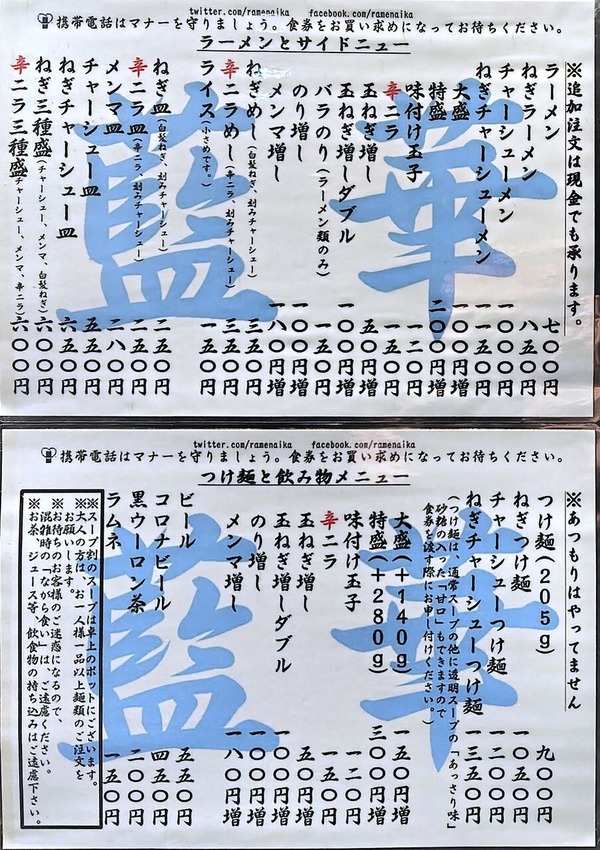 twitter.com/ramenaika facebook.com/ramenaika
携帯電話はマナーを守りましょう。食券をお買い求めになってお待ちください。
ラーメンとサイドニュー
※追加注文は現金でも承ります。
ラーメン 七〇〇円
ねぎラーメン 八五〇円
チャーシューメン 一〇〇〇円
ねぎチャーシューメン 一一五〇円
大盛 一〇〇円増
特盛 二〇〇円増
味付け玉子 一〇〇円
辛ニラ 一五〇円
玉ねぎ増し 五〇円増
玉ねぎ増しダブル 一〇〇円増
バラのり(ラーメン類のみ) 一五〇円
のり増し 一〇〇円増
メンマ増し 一八〇円増
ねぎめし(白髪ねぎ、刻みチャーシュー) 三五〇円
辛ニラめし(辛ニラ、刻みチャーシュー) 三五〇円
ライス(小さめです。) 一五〇円
ねぎ皿(白髪ねぎ、刻みチャーシュー) 二五〇円
辛ニラ皿(辛ニラ、刻みチャーシュー) 二五〇円
メンマ皿 二八〇円
チャーシュー皿 五五〇円
ねぎチャーシュー皿 六五〇円
ねぎ三種盛(チャーシュー、メンマ、白髪ねぎ) 六〇〇円
辛ニラ三種盛(チャーシュー、メンマ、辛ニラ) 六〇〇円
華藍
twitter.com/ramenaika facebook.com/ramenaika
携帯電話はマナーを守りましょう。食券をお買い求めになってお待ちください。
つけ麺と飲み物メニュー
※あつもりはやってません
つけ麺(205g) 九〇〇円
ねぎつけ麺 一〇五〇円
チャーシューつけ麺 一二〇〇円
ねぎチャーシューつけ麺 一三五〇円
(つけ麺は、通常スープの他に透明スープの「あっさり味」
砂糖の入った「甘口」もできますので
食券を渡す際にお申し付けください。)
大盛(+140g) 一五〇円増
特盛(+280g) 三〇〇円増
味付け玉子 一二〇円
辛ニラ 一五〇円
玉ねぎ増し 五〇円増
玉ねぎ増しダブル 一〇〇円増
のり増し 一〇〇円増
メンマ増し 一八〇円増
ビール 五五〇円
コロナビール 四五〇円
黒ウーロン茶 一五〇円
ラムネ 一五〇円
※スープ割のスープは卓上のポットにございます。
※大人の方は、お一人様一品以上麺類のご注文を
お願いします。
※お待ちのお客様のご迷惑になるので、
混雑時の「ながら食い」は、ご遠慮ください。
※お茶、ジュース等、飲食物の持ち込みはご遠慮下さい。
華藍